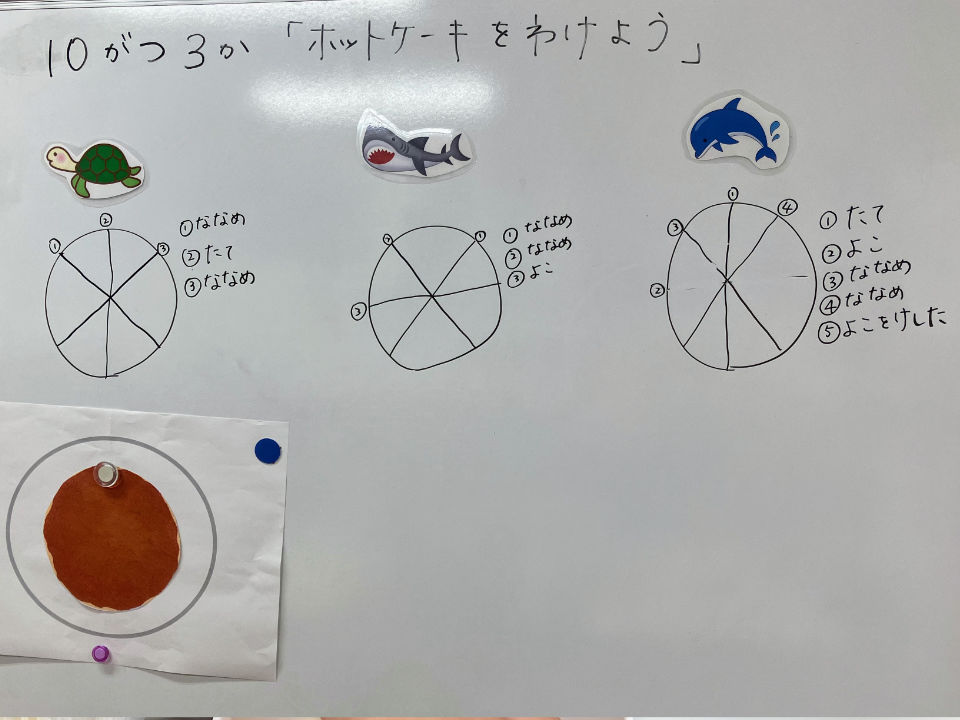 10がつ3か「ホットケーキをわけよう」
②
①
③
①ななめ
②たて
③ななめ
①
③
①ななめ
②ななめ
③よこ
①
④
③
②
①たて
②よこ
③ななめ
④ななめ
⑤よこをけした